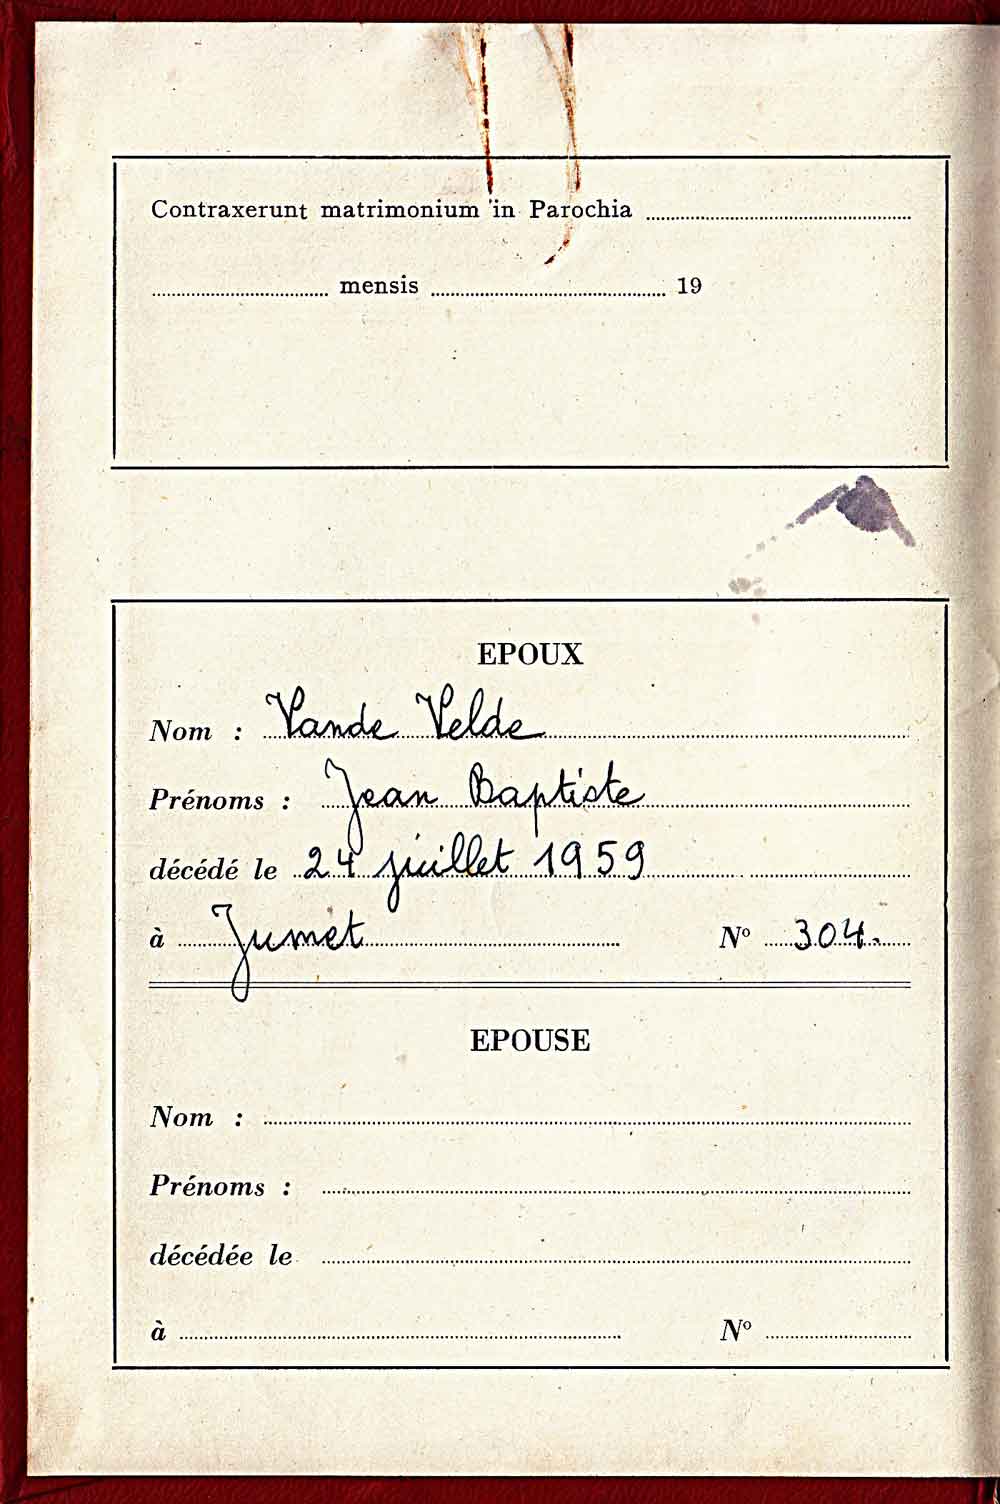 Contraxerunt matrimonium in Parochia
mensis 19
EPOUX
Nom : Vande Velde
Prénoms : Jean Baptiste
décédé le 24 juillet 1959
à Jumet Nº 304.
EPOUSE
Nom :
Prénoms :
décédée le
à Nº